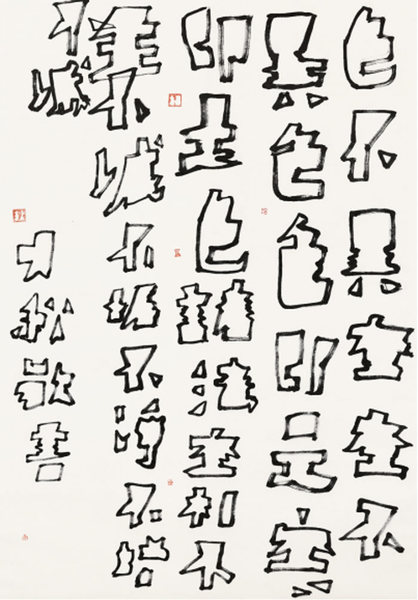 色不異空空不
異色色即是空
即是色諸法空相不
生不滅不垢不淨不增
不減
秋敬書